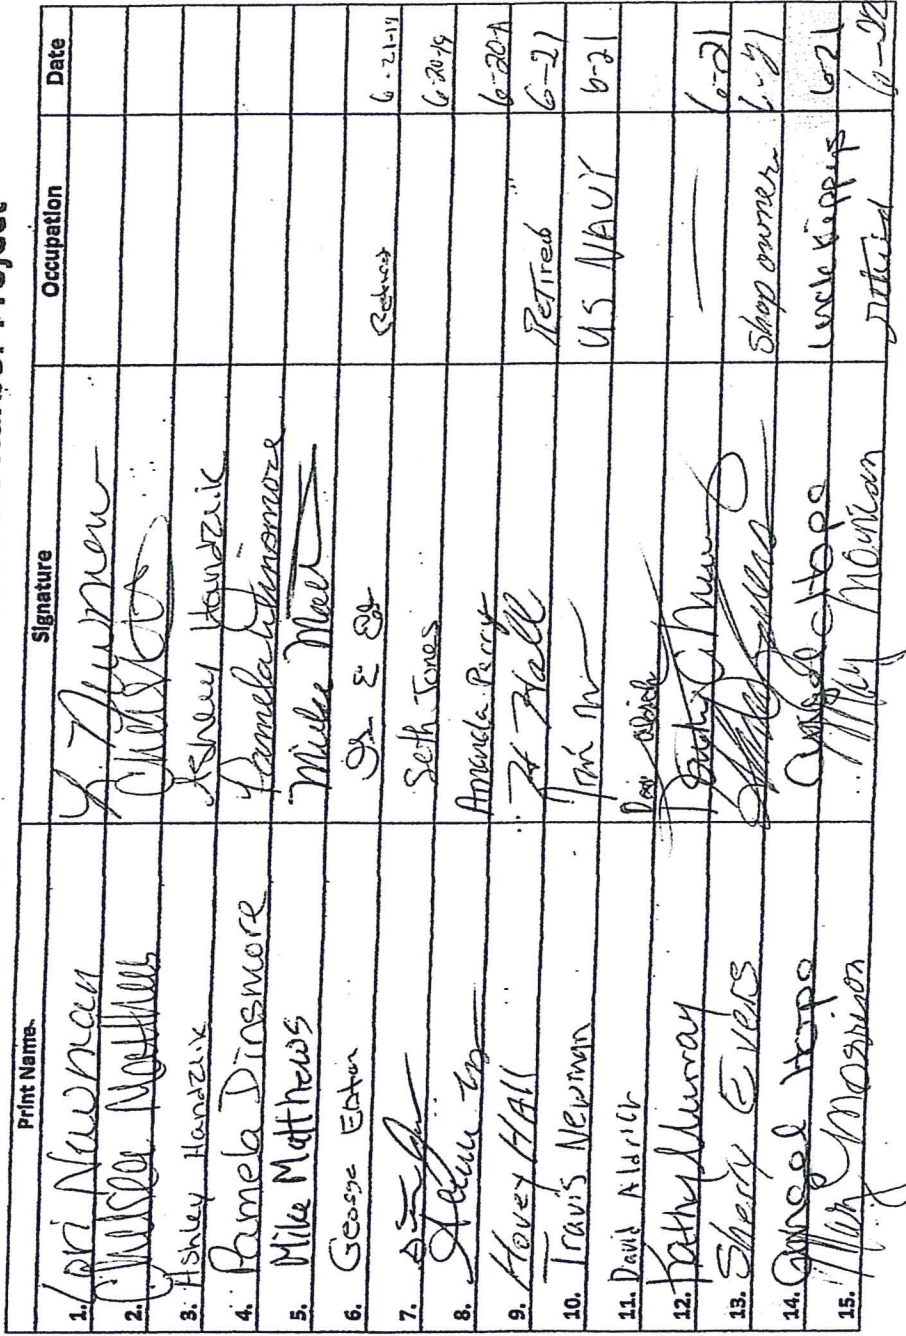 Project
Print Name Signature Occupation Date
1. Lori Newman L. Newman
2. Chelsea Matthews
3. Ashley Handzlik Ashley Handzlik
4. Pamela Dinsmore Pamela Dinsmore
5. Mike Matthews Mike
6. George Eaton Retired 6-21-19
7. Seth Jones 6-20-19
8. Amanda Perry 6-20-19
9. Hovey HAll H Hall Retired 6-21
10. Travis Newman US NAVY 6-21
11. David Aldrich
12. Kathy Murray — 6-21
13. Sherry Evers Shop owner 6-21
14. Angel Hopps Angel Hopps 6-21
15. Mary Morrison Mary retired 6-22